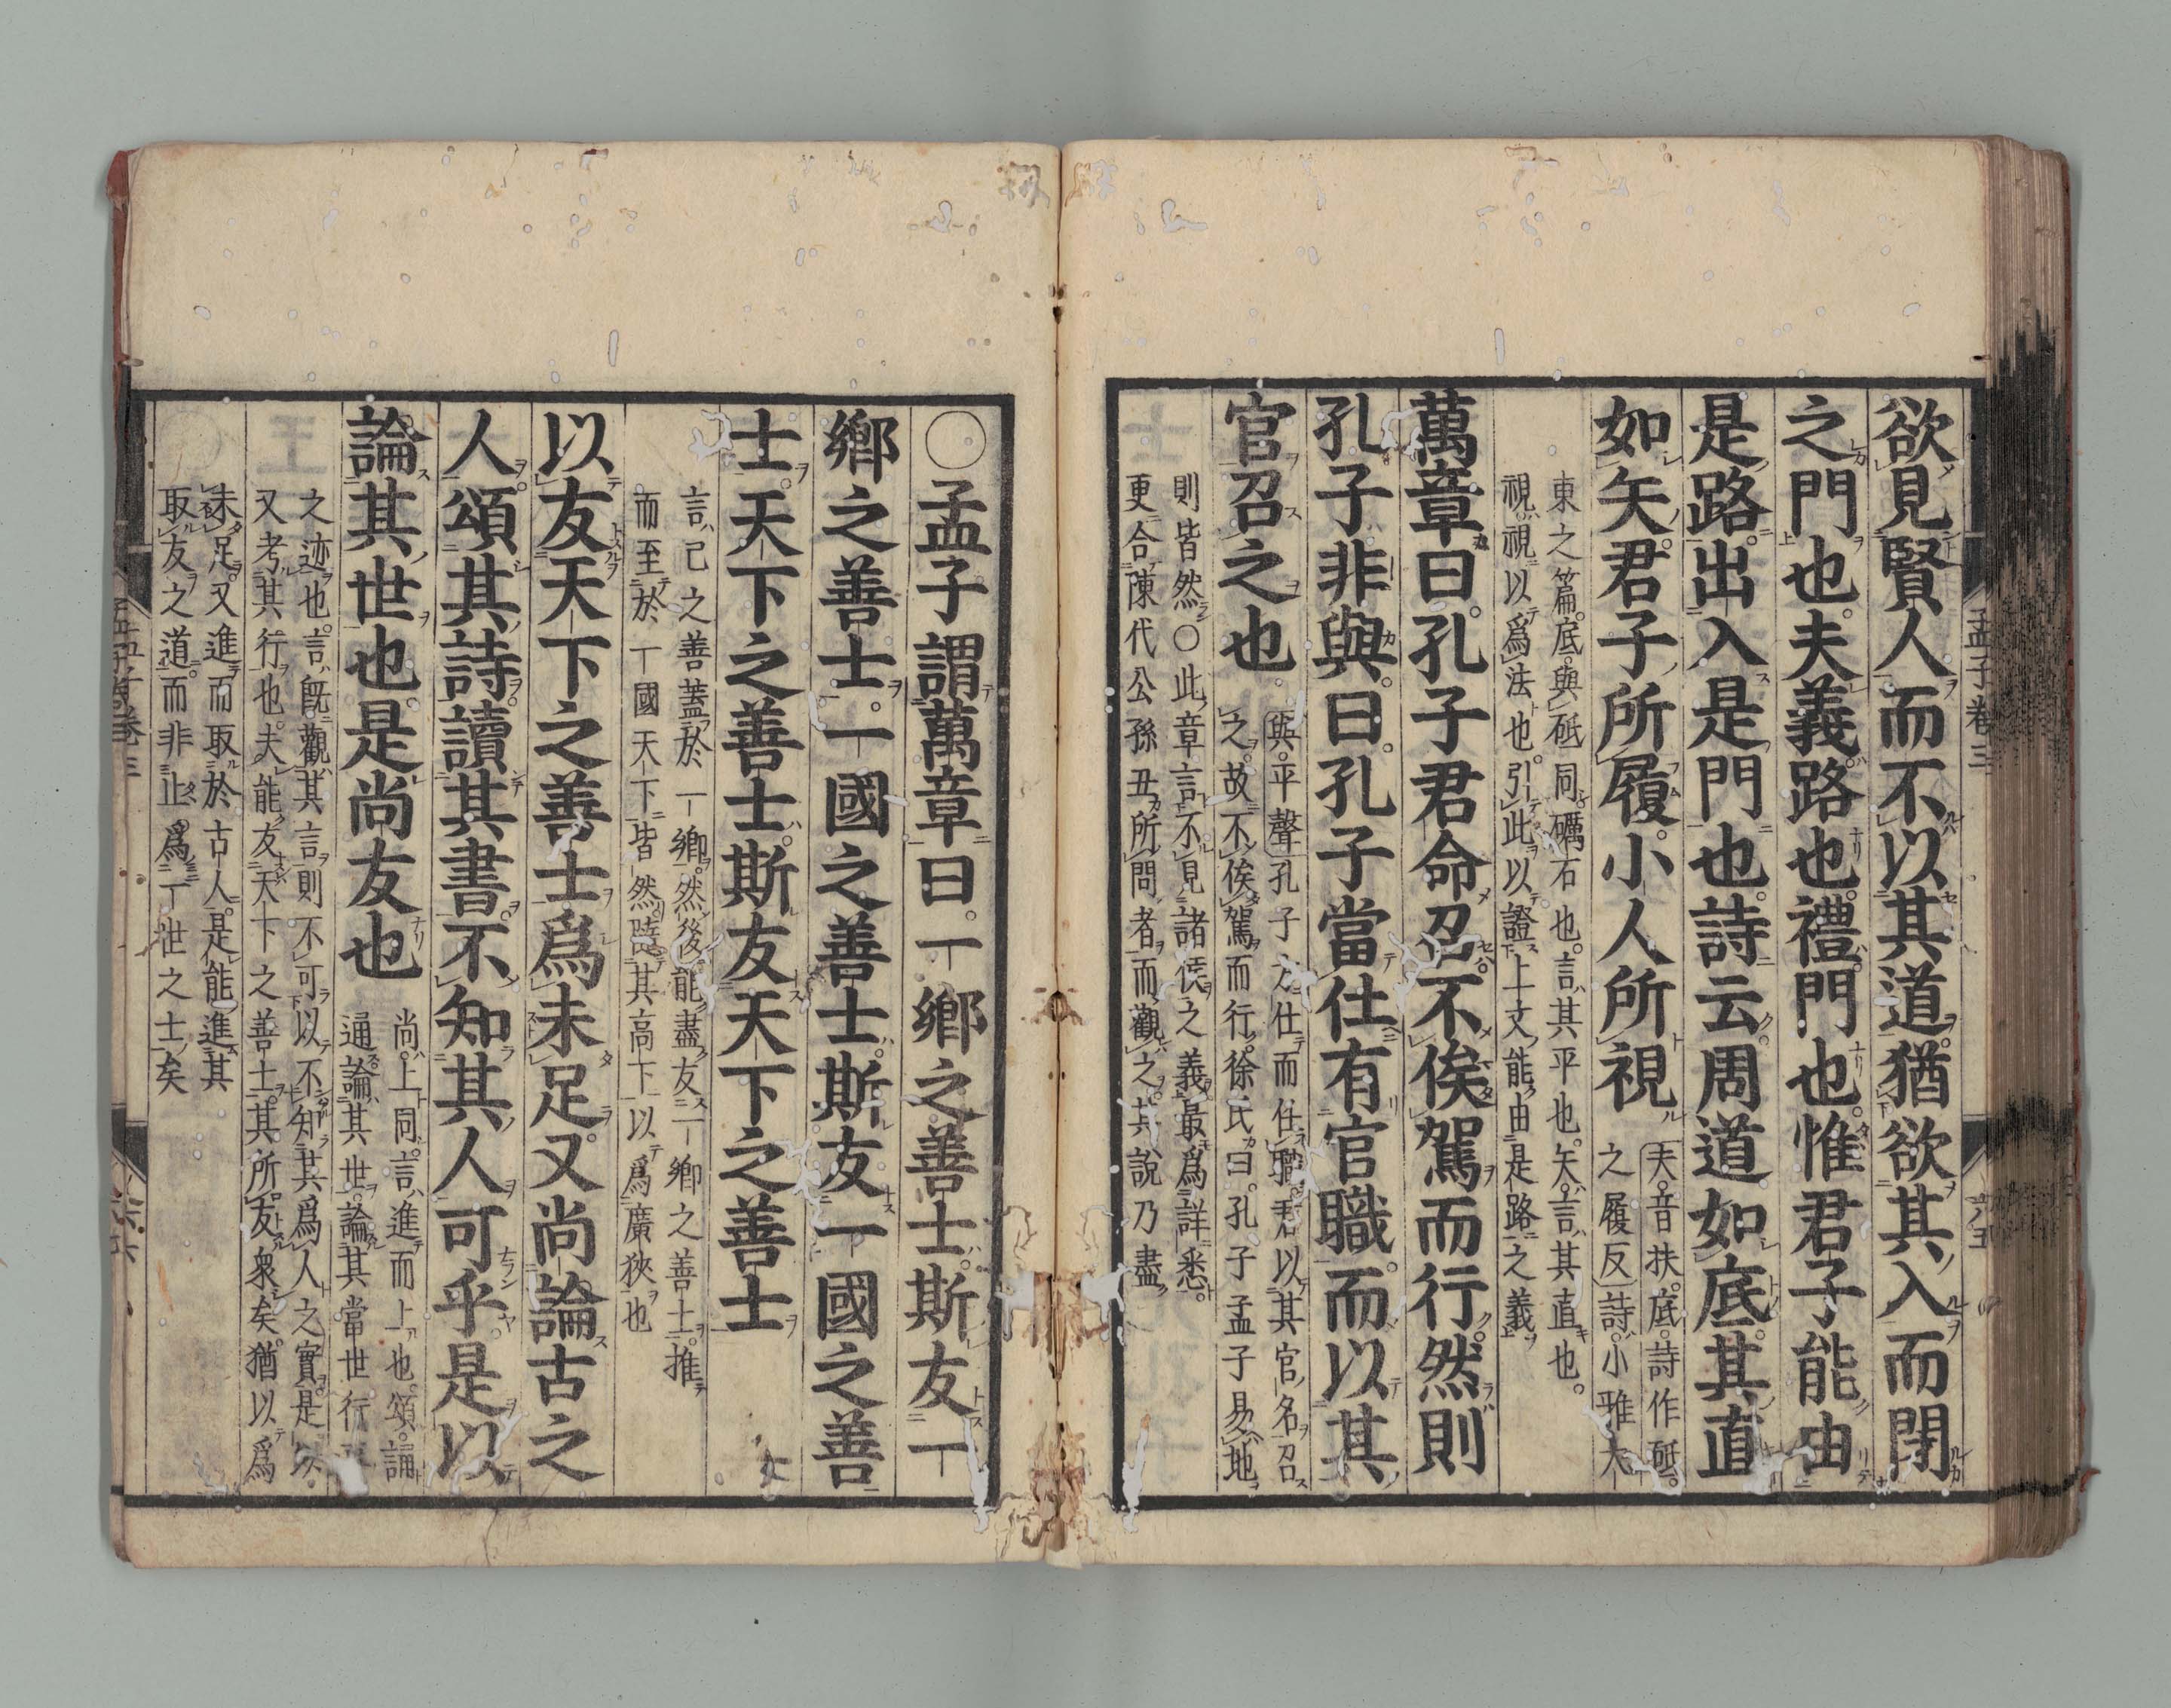 欲見賢人而不以其道猶欲其入而閉
之門也夫義路也禮門也惟君子能由
是路出入是門也詩云周道如底其直
如矢君子所履小人所視
夫音扶底詩作砥
之履反詩小雅大
東之篇底與砥同礪石也言其平也矢言其直也
視視以爲法也引此以證上文能由是路之義
萬章曰孔子君命召不俟駕而行然則
孔子非與曰孔子當仕有官職而以其
官召之也
與平聲孔子方仕而任職君以其官名召
之故不俟駕而行徐氏曰孔子孟子易地
則皆然○此章言不見諸侯之義最爲詳悉
更合陳代公孫丑所問者而觀之其說乃盡
孟子卷三
六五
○孟子謂萬章曰一鄉之善士斯友一
鄉之善士一國之善士斯友一國之善
士天下之善士斯友天下之善士
言己之善蓋於一鄉然後能盡友一鄉之善士推
而至於一國天下皆然隨其高下以爲廣狹也
以友天下之善士爲未足又尚論古之
人頌其詩讀其書不知其人可乎是以
論其世也是尚友也
尚上同言進而上也頌誦
通論其世論其當世行
之迹也言旣觀其言則不可以不知其爲人之實是以
又考其行也夫能友天下之善士其所友衆矣猶以爲
未足又進而取於古人是能進其
取友之道而非止爲一世之士矣
孟子卷三
六六